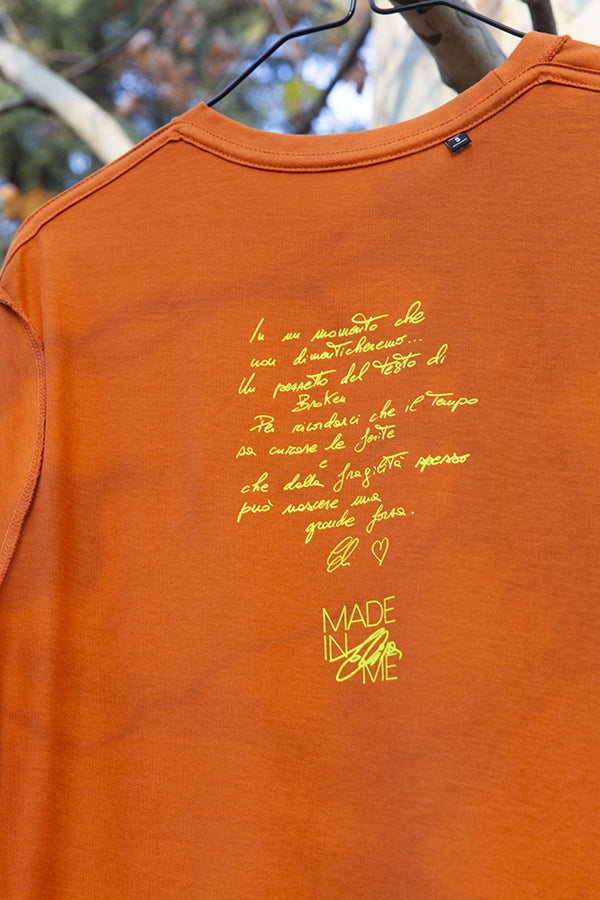 S
In un momento che
non dimenticheremo...
Un pezzetto del testo di
Broken
Per ricordarci che il tempo
sa curare le ferite
e
che dalla fragilità spesso
può nascere una
grande forza.
MADE
IN
ME